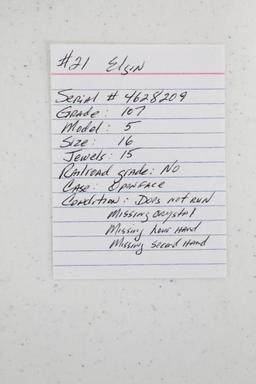 #21 Elgin
Serial # 4628209
Grade: 107
Model: 5
Size: 16
Jewels: 15
Railroad grade: No
Case: Openface
Condition: Does not run
Missing crystal
Missing hour hand
Missing second hand